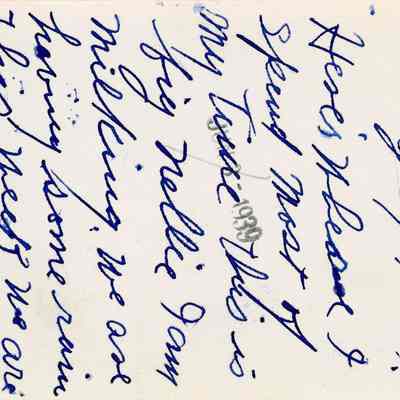 Here's Wheare I
spend most of
My Time this is
big Nellie I am
Milking. We are
having some rain
this week we are
1939